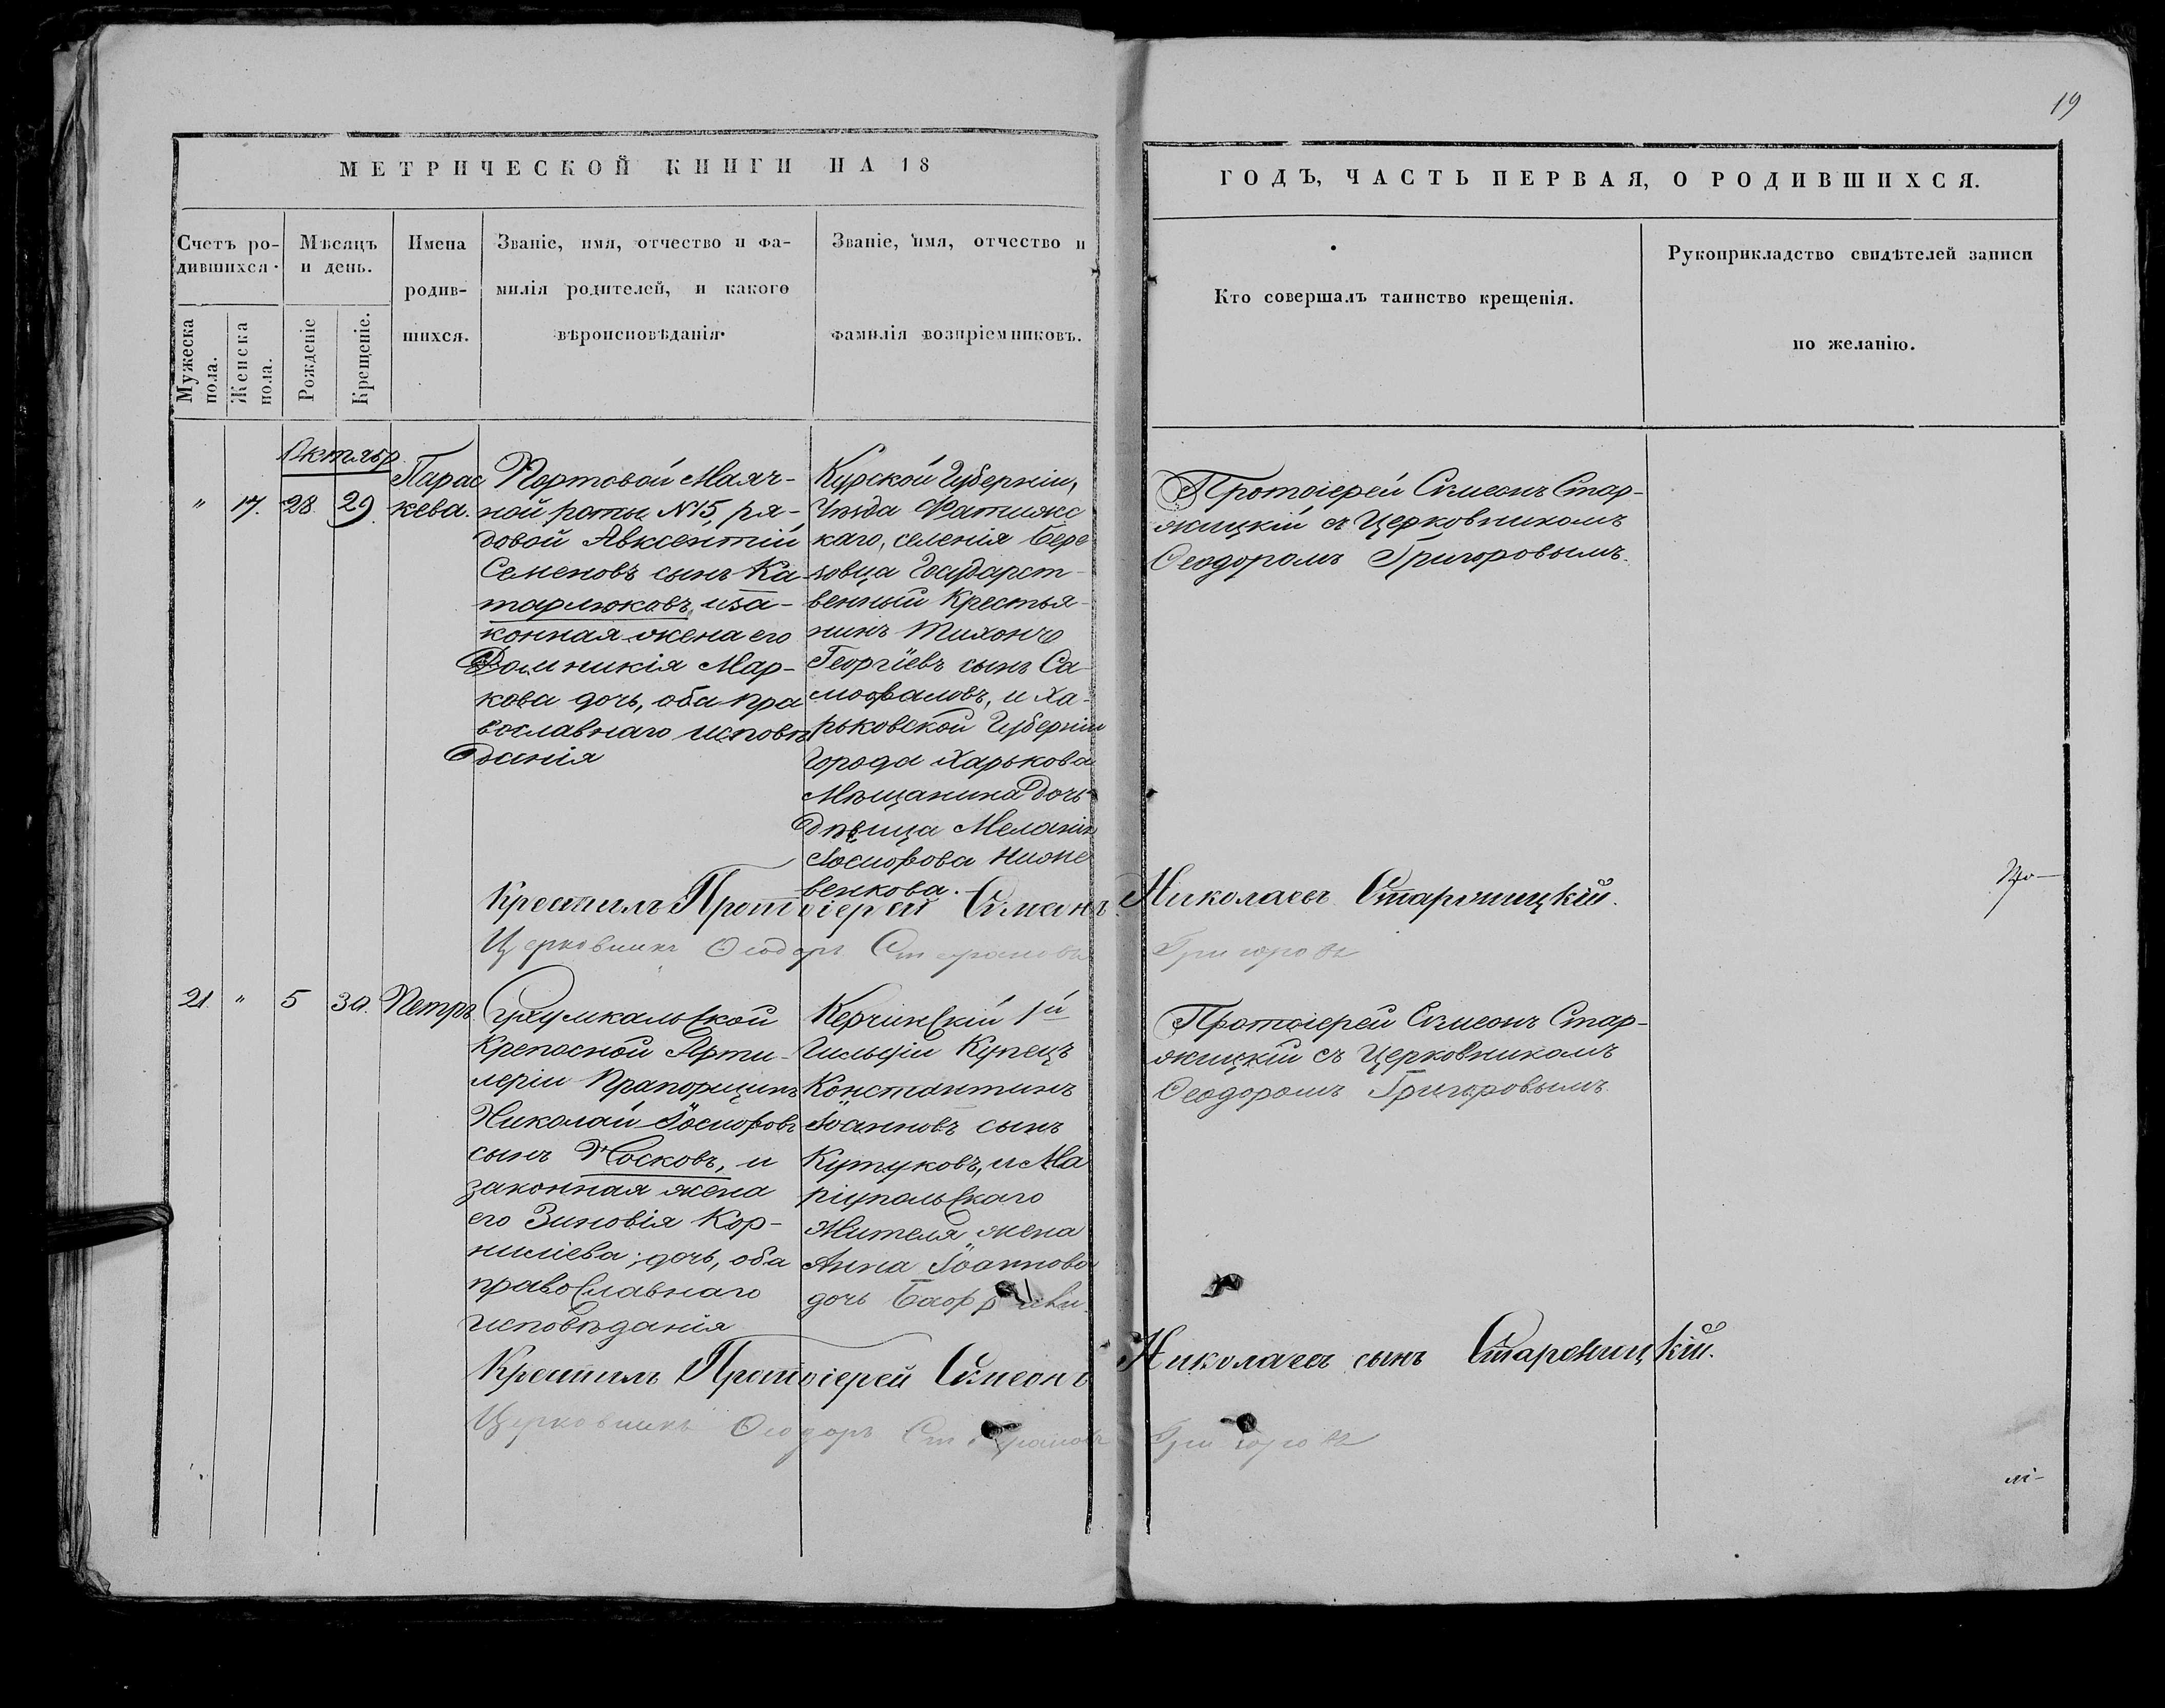 19
МЕТРИЧЕСКОЙ КНИГИ НА 18
ГОДЪ, ЧАСТЬ ПЕРВАЯ, О РОДИВШИХСЯ.
Счетъ ро-
дившихся.
Мужеска
пола.
Женска
пола.
Мѣсяцъ
и день.
Рожденіе
Крещеніе.
Имена
родив-
шихся.
Званіе, имя, отчество и фа-
милія родителей, и какого
вѣроисповѣданія.
Званіе, имя, отчество и
фамилія воспріемниковъ.
Кто совершалъ таинство крещенія.
Рукоприкладство свидѣтелей записи
по желанію.
Октябр
" 17. 28 29.
Парас
кева.
Портовой Маяч-
ной роты №15, ря-
довой Авксентій
Семеновъ сынъ Ка-
тарлюковъ, иза-
конная жена его
Домникія Мар-
кова дочь, оба пра
вославнаго исповѣ
данія
Курской Губерніи,
Уѣзда Фатижс
каго, селенія Бере
зовца Государст-
венный Крестья-
нинъ Тихонъ
Георгіевъ сынъ Са
мофаловъ, и Ха-
рьковской Губерніи
Города Харькова
Мѣщанина дочь
дѣвица Меланія
Іосифова
венкова.
Протоіерей Сѵмеонъ Стар-
жицкій съ Церковникомъ
Ѳеодоромъ Григоровымъ.
Крестилъ Протоіерей Сѵмеонъ Николаевъ Старжицкій.
Церковникъ Ѳеодоръ Стефановъ Григоровъ
21. " 5 30. Петръ.
Сухумкальской
Крепосной Арти-
леріи Прапорщикъ
Николай Іосифовъ
сынъ Носковъ, и
законная жена
его Зиновія Кор-
нилiева, дочь, оба
православнаго
исповѣданія
Керчинскій 1й
Гильдіи Купецъ
Константинъ
Іоанновъ сынъ
Кутуковъ, и Ма
ріупольскаго
Жителя жена
Анна Іоаннова
дочь
Протоіерей Сѵмеонъ Стар-
жицкій съ Церковникомъ
Ѳеодоромъ Григоровымъ.
Крестилъ Протоіерей Сѵмеонъ Николаевъ сынъ Старжицкій.
Церковникъ Ѳеодоръ Стефановъ Григоровъ